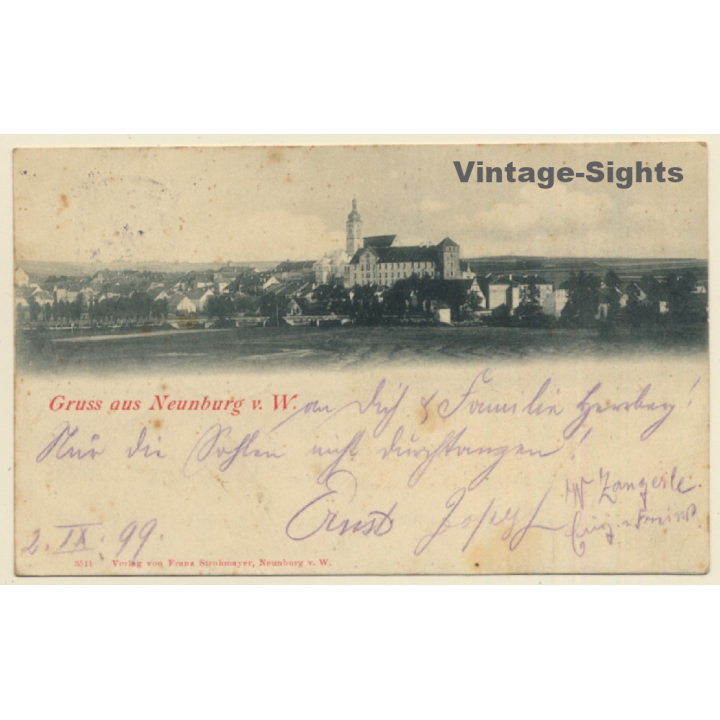 Vintage-Sights
Gruss aus Neunburg v. W. an Dich & Familie
Nur die Sohlen nicht durchtanzen!
Ernst Josef W Zangerle
2. IX. 99.
3511 Verlag von Franz Strohmayer, Neunburg v. W.